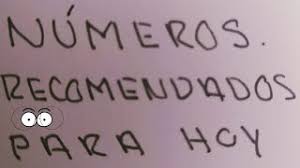 NÚMEROS.
RECOMENDADOS
PARA HOY